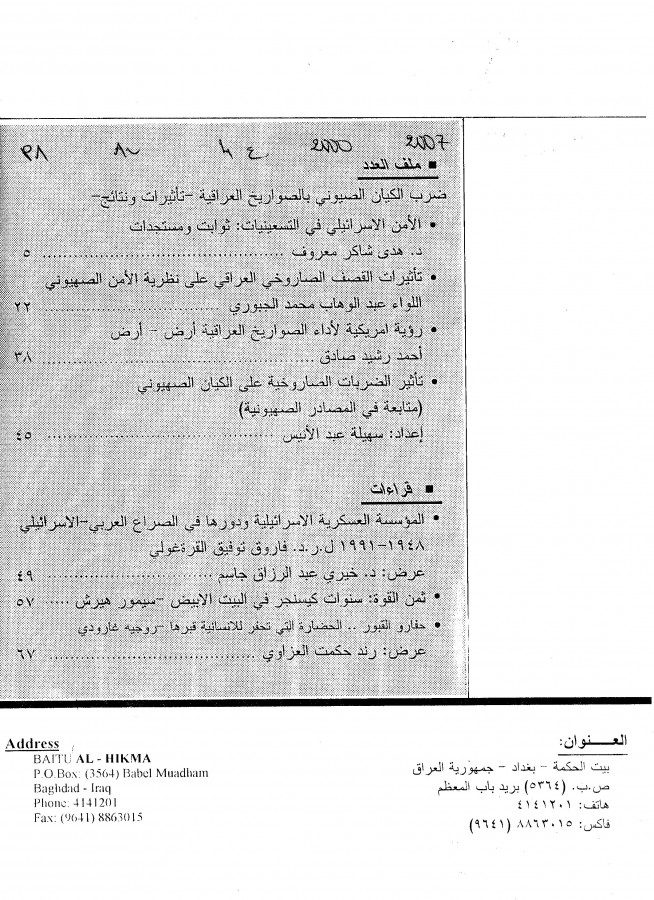 2007 2000 ٤ ٨٠ ٣٨
▪ ملف العدد
ضرب الكيان الصيوني بالصواريخ العراقية -تأثيرات ونتائج-
• الأمن الاسرائيلي في التسعينيات: ثوابت ومستجدات
د. هدى شاكر معروف ........ ٥
• تأثيرات القصف الصاروخي العراقي على نظرية الأمن الصهيوني
اللواء عبد الوهاب محمد الجبوري ........ ٢٢
• رؤية امريكية لأداء الصواريخ العراقية أرض - أرض
أحمد رشيد صادق ........ ٣٨
• تأثير الضربات الصاروخية على الكيان الصهيوني
(متابعة في المصادر الصهيونية)
إعداد: سهيلة عبد الأنيس ........ ٤٥
▪ قراءات
• المؤسسة العسكرية الاسرائيلية ودورها في الصراع العربي-الاسرائيلي
١٩٤٨-١٩٩١ ل.ر.د. فاروق توفيق القرةغولي
عرض: د. خيري عبد الرزاق جاسم ........ ٤٩
• ثمن القوة: سنوات كيسنجر في البيت الابيض -سيمور هيرش ..... ٥٧
• حفارو القبور .. الحضارة التي تحفر للانسانية قبرها -روجيه غارودي
عرض: رند حكمت العزاوي ........ ٦٧
العـــنوان:
بيت الحكمة - بغداد - جمهورية العراق
ص.ب. (٥٣٦٤) بريد باب المعظم
هاتف: ٤١٤١٢٠١
فاكس: ٨٨٦٣٠١٥ (٩٦٤١)
Address
BAITU AL - HIKMA
P.O.Box: (3564) Babel Muadham
Baghdad - Iraq
Phone: 4141201
Fax: (9641) 8863015